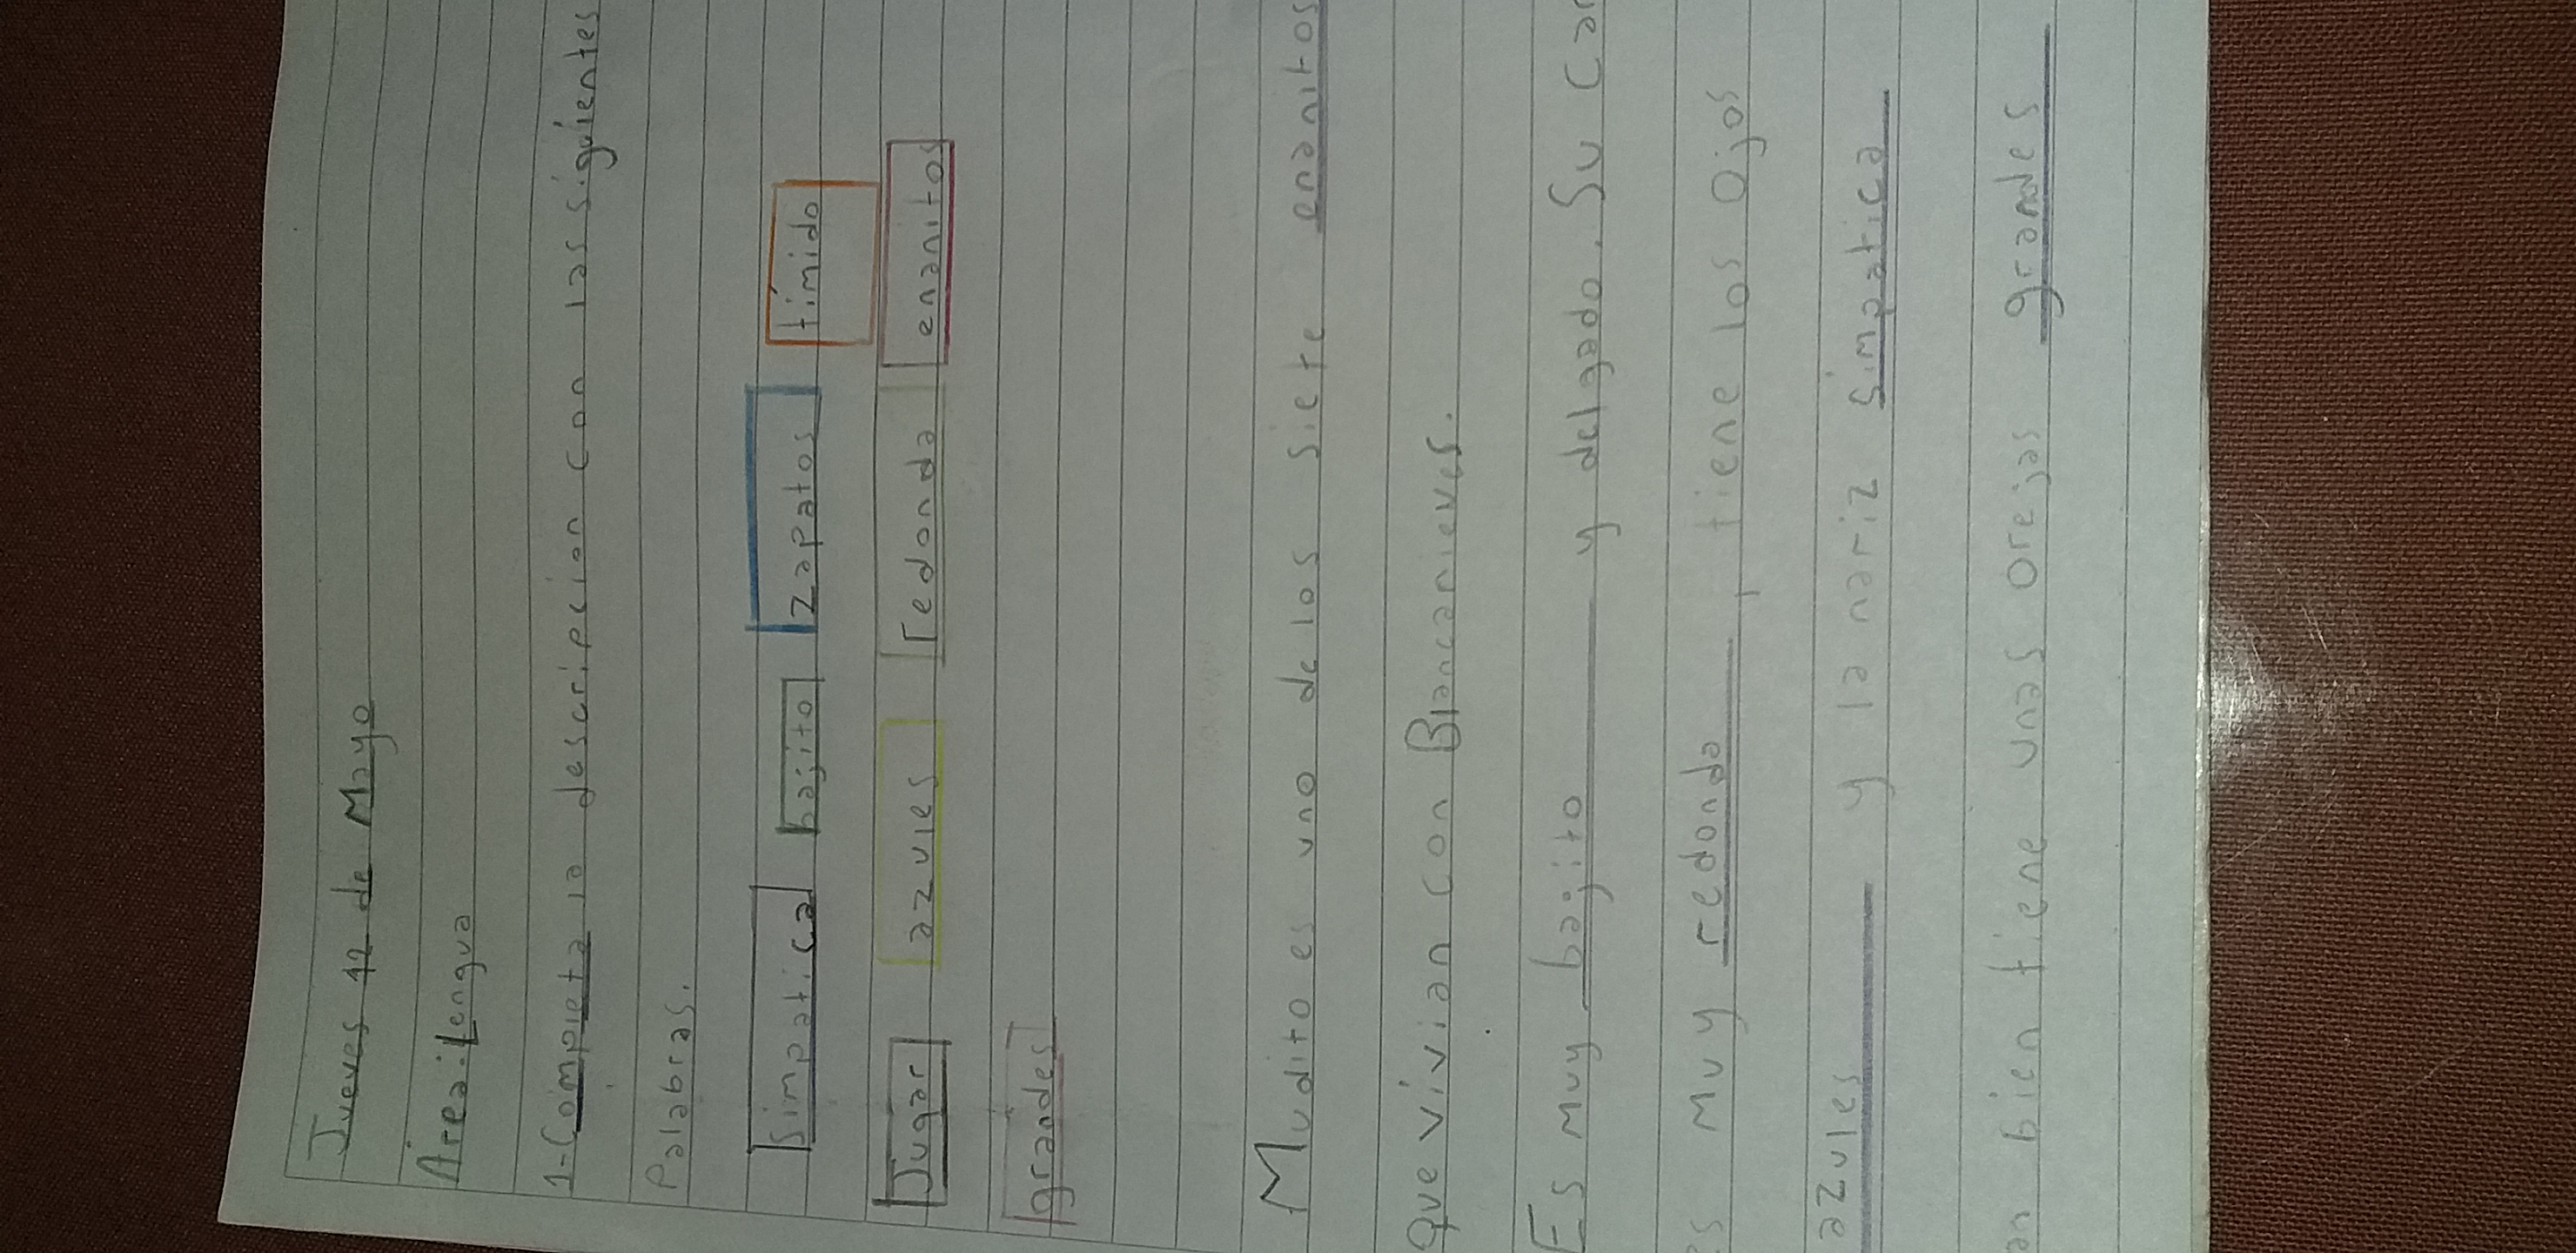 Jueves 12 de Mayo
Área: Lengua
1-Completa la descripcion con las siguientes
Palabras.
Simpatica bajito zapatos tímido
Jugar azules redonda enanitos
grandes
Mudito es uno de los siete enanitos
Que vivian con Blancanieves.
Es muy bajito y delgado. Su car
es muy redonda, tiene los ojos
azules y la nariz simpatica
an bien tiene unas orejas grandes